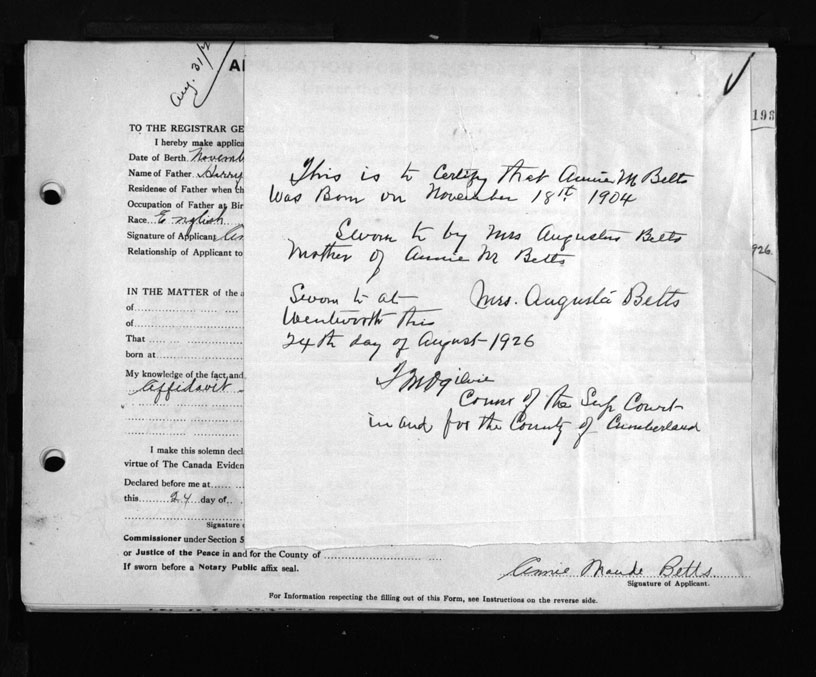 Aug. 31/2
TO THE REGISTRAR GE
I hereby make applica
Date of Berth. Novemb
Name of Father. Harry
Residense of Father when th
Occupation of Father at Bir
Race...English
Signature of Applicant An
Relationship of Applicant to
IN THE MATTER of the a
of
of
That
born at
My knowledge of the fact, and
Affidavit
I make this solemn decl
virtue of The Canada Eviden
Declared before me at
this 24 day of
Signature
Commissioner under Section 5
or Justice of the Peace in and for the County of
If sworn before a Notary Public affix seal.
This is to Certify that Annie M Betts
Was Born on November 18th 1904
Sworn to by Mrs Augusta Betts
Mother of Annie M Betts
Sworn to at Mrs. Augusta Betts
Wentworth this
24th day of August 1926
Ogilvie
Comr of the Sup Court
in and for the County of Cumberland
193
926.
Annie Maude Betts
Signature of Applicant.
For Information respecting the filling out of this Form, see Instructions on the reverse side.